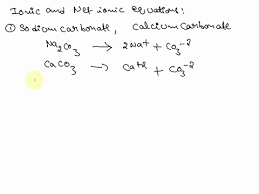 Ionic and Net ionic equations:
① Sodium carbonate, Calcium carbonate
Na₂CO₃ → 2Na⁺ + CO₃⁻²
CaCO₃ → Ca⁺² + CO₃⁻²